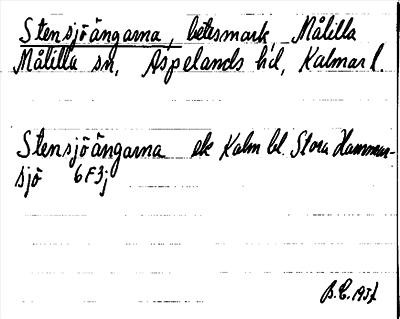 Stensjöängarna, betesmark, Målilla
Målilla sn, Aspelands hd, Kalmar l.
Stensjöängarna ek Kalm bl. Stora Hammar-
sjö 6F3j
B.E. 1937